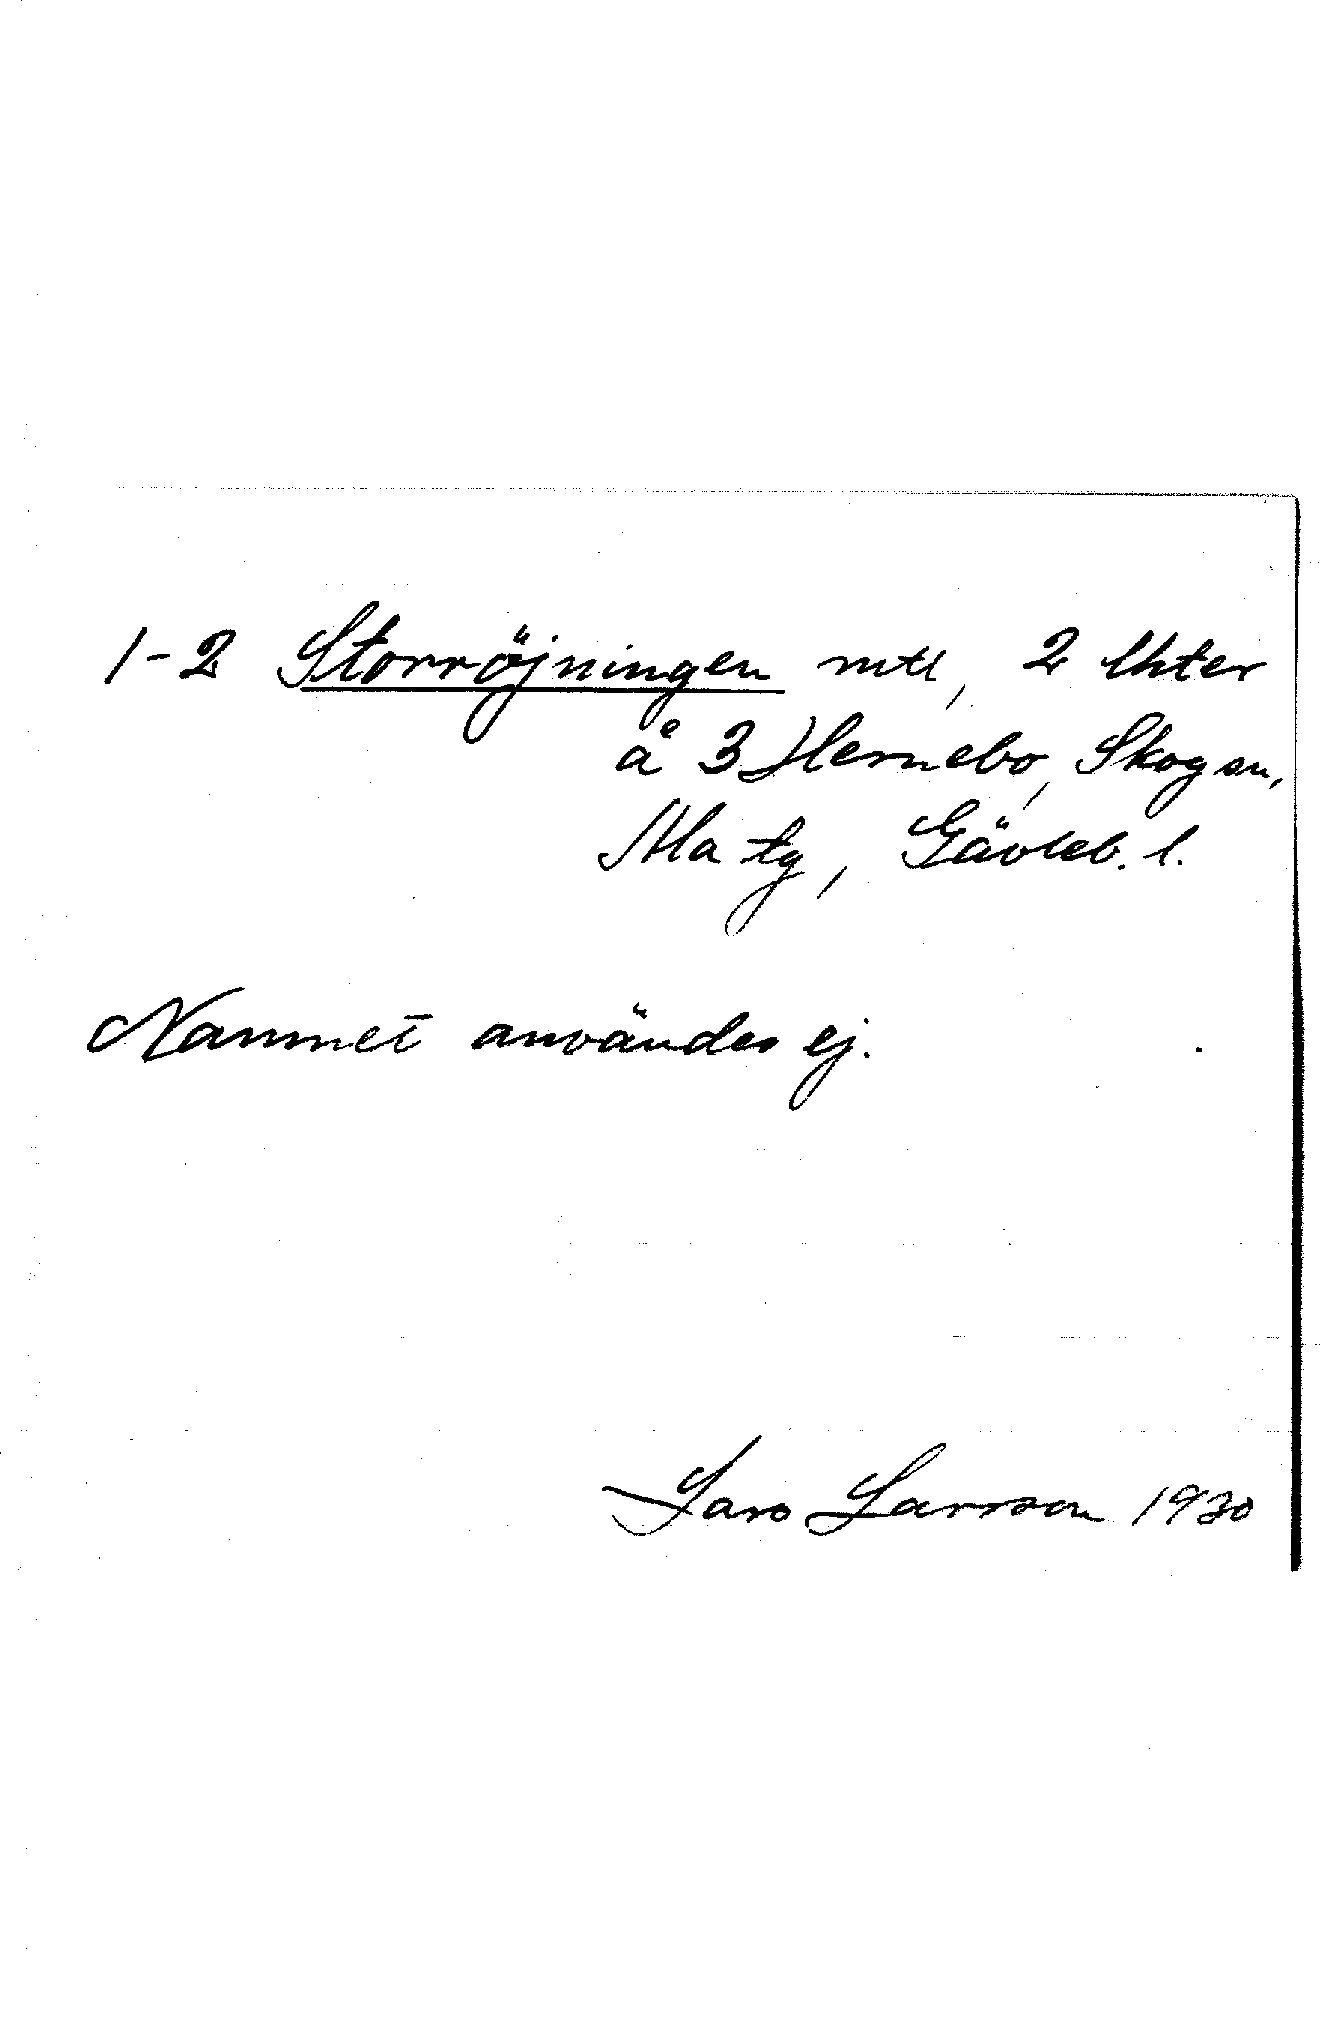 1-2 Storröjningen mtl, 2 lhter
å 3 Hernebo, Skog sn,
Ala tg, Gävleb. l.
Namnet användes ej.
Lars Larsson 1930